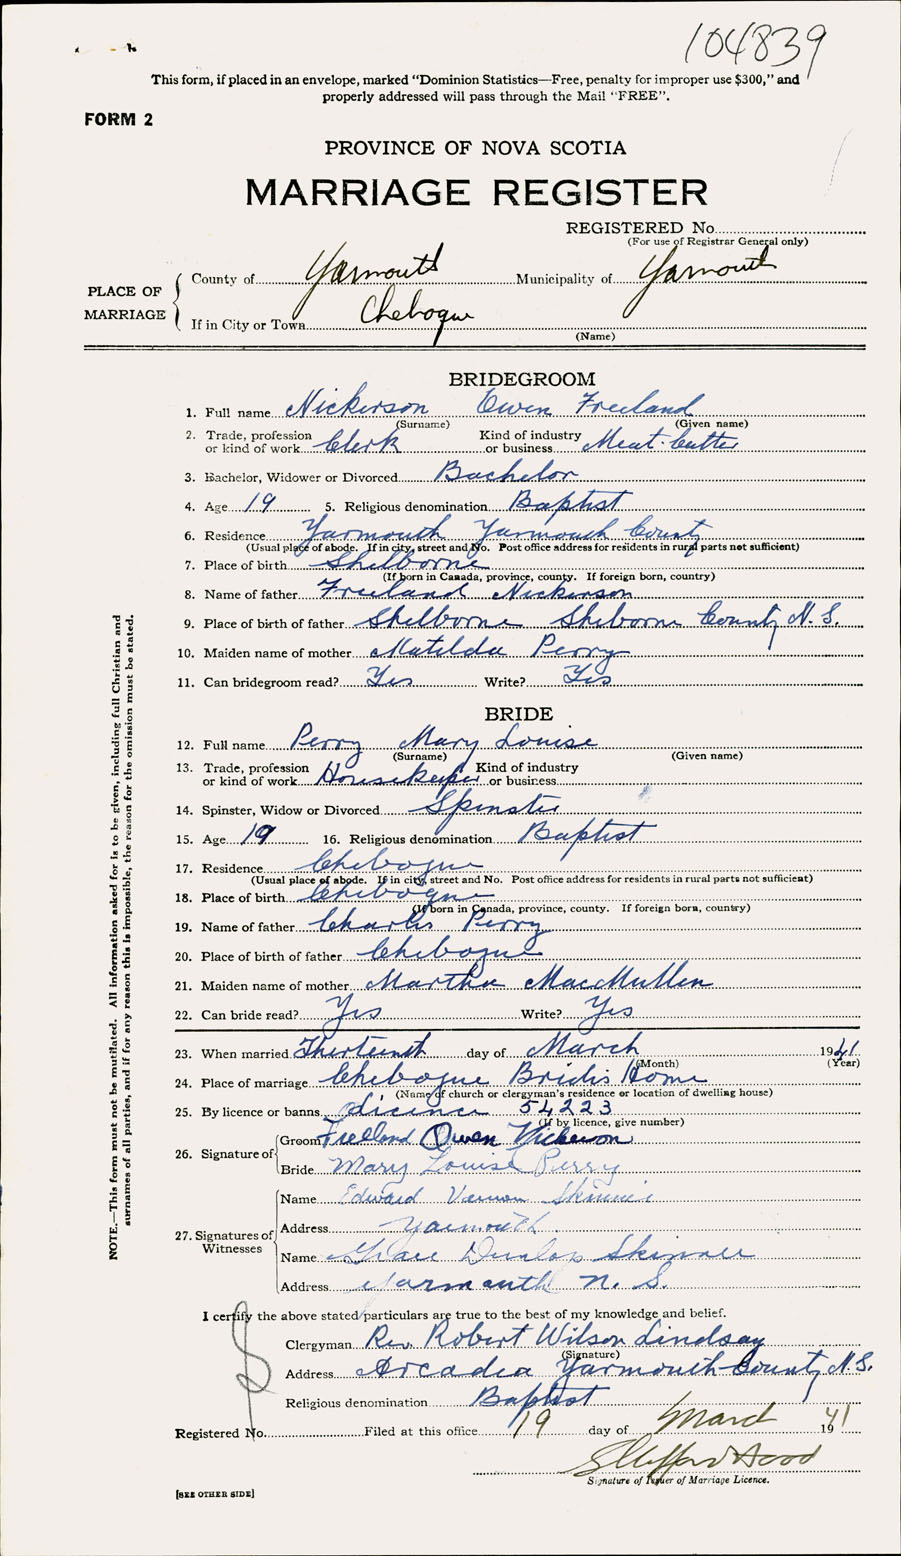 104839
This form, if placed in an envelope, marked "Dominion Statistics—Free, penalty for improper use $300," and
properly addressed will pass through the Mail "FREE".
FORM 2
PROVINCE OF NOVA SCOTIA
MARRIAGE REGISTER
REGISTERED No.
(For use of Registrar General only)
PLACE OF MARRIAGE
County of Yarmouth Municipality of Yarmouth
If in City or Town Chebogue
(Name)
BRIDEGROOM
1. Full name Nickerson Owen Freeland
(Surname) (Given name)
2. Trade, profession or kind of work Clerk Kind of industry or business Meat-Cutter
3. Bachelor, Widower or Divorced Bachelor
4. Age 19 5. Religious denomination Baptist
6. Residence Yarmouth Yarmouth County
(Usual place of abode. If in city, street and No. Post office address for residents in rural parts not sufficient)
7. Place of birth Shelborne
(If born in Canada, province, county. If foreign born, country)
8. Name of father Freeland Nickerson
9. Place of birth of father Shelborne Shelborne County N.S.
10. Maiden name of mother Matilda Perry
11. Can bridegroom read? Yes Write? Yes
BRIDE
12. Full name Perry Mary Louise
(Surname) (Given name)
13. Trade, profession or kind of work Housekeeper Kind of industry or business
14. Spinster, Widow or Divorced Spinster
15. Age 19 16. Religious denomination Baptist
17. Residence Chebogue
(Usual place of abode. If in city, street and No. Post office address for residents in rural parts not sufficient)
18. Place of birth Chebogue
(If born in Canada, province, county. If foreign born, country)
19. Name of father Charles Perry
20. Place of birth of father Chebogue
21. Maiden name of mother Martha MacMullen
22. Can bride read? Yes Write? Yes
23. When married Thirteenth day of March 1941
(Month) (Year)
24. Place of marriage Chebogue Brides Home
(Name of church or clergyman's residence or location of dwelling house)
25. By licence or banns Licence 54223
(If by licence, give number)
26. Signature of Groom Freeland Owen Nickerson
Bride Mary Louise Perry
27. Signatures of Witnesses
Name Edward Vernon Skinner
Address Yarmouth
Name Grace Dunlap Skinner
Address Yarmouth N.S.
I certify the above stated particulars are true to the best of my knowledge and belief.
Clergyman Rev. Robert Wilson Lindsay
(Signature)
Address Arcadia Yarmouth County N.S.
Religious denomination Baptist
Registered No. Filed at this office 19 day of March 1941
Signature of Issuer of Marriage Licence.
[SEE OTHER SIDE]
NOTE.—This form must not be mutilated. All information asked for is to be given, including full Christian and
surnames of all parties, and if for any reason this is impossible, the reason for the omission must be stated.